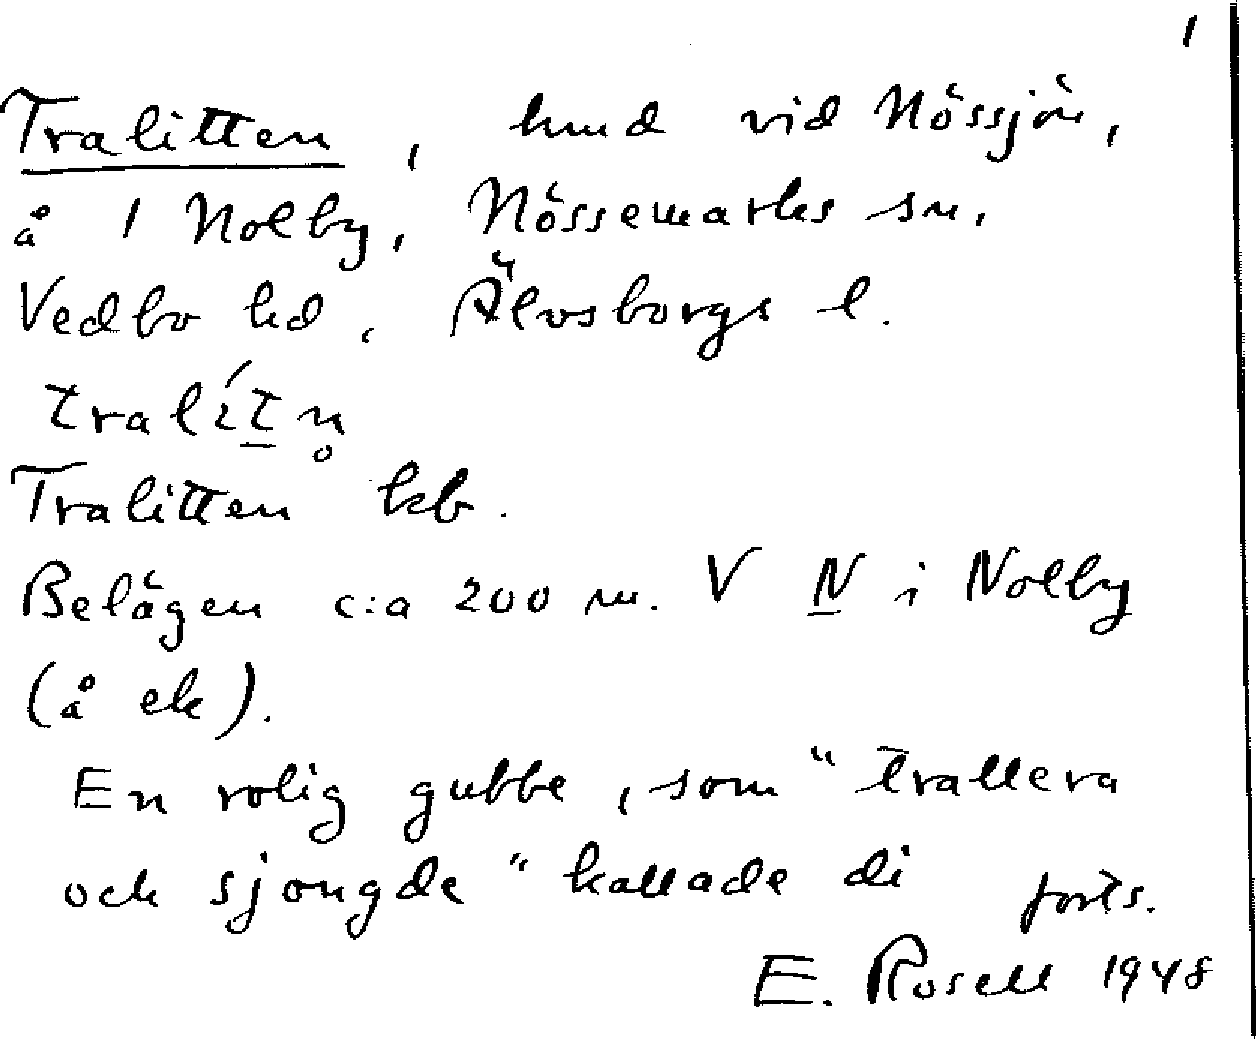 1
Tralitten, lund vid Nössjön,
å 1 Nolby, Nössemarks sn,
Vedbo hd, Älvsborgs l.
tralítn̥
Tralitten kb.
Belägen c:a 200 m. V N i Nolby
(å ek).
En rolig gubbe, som "trallera
och sjongde" kallade di
forts.
E. Rosell 1948